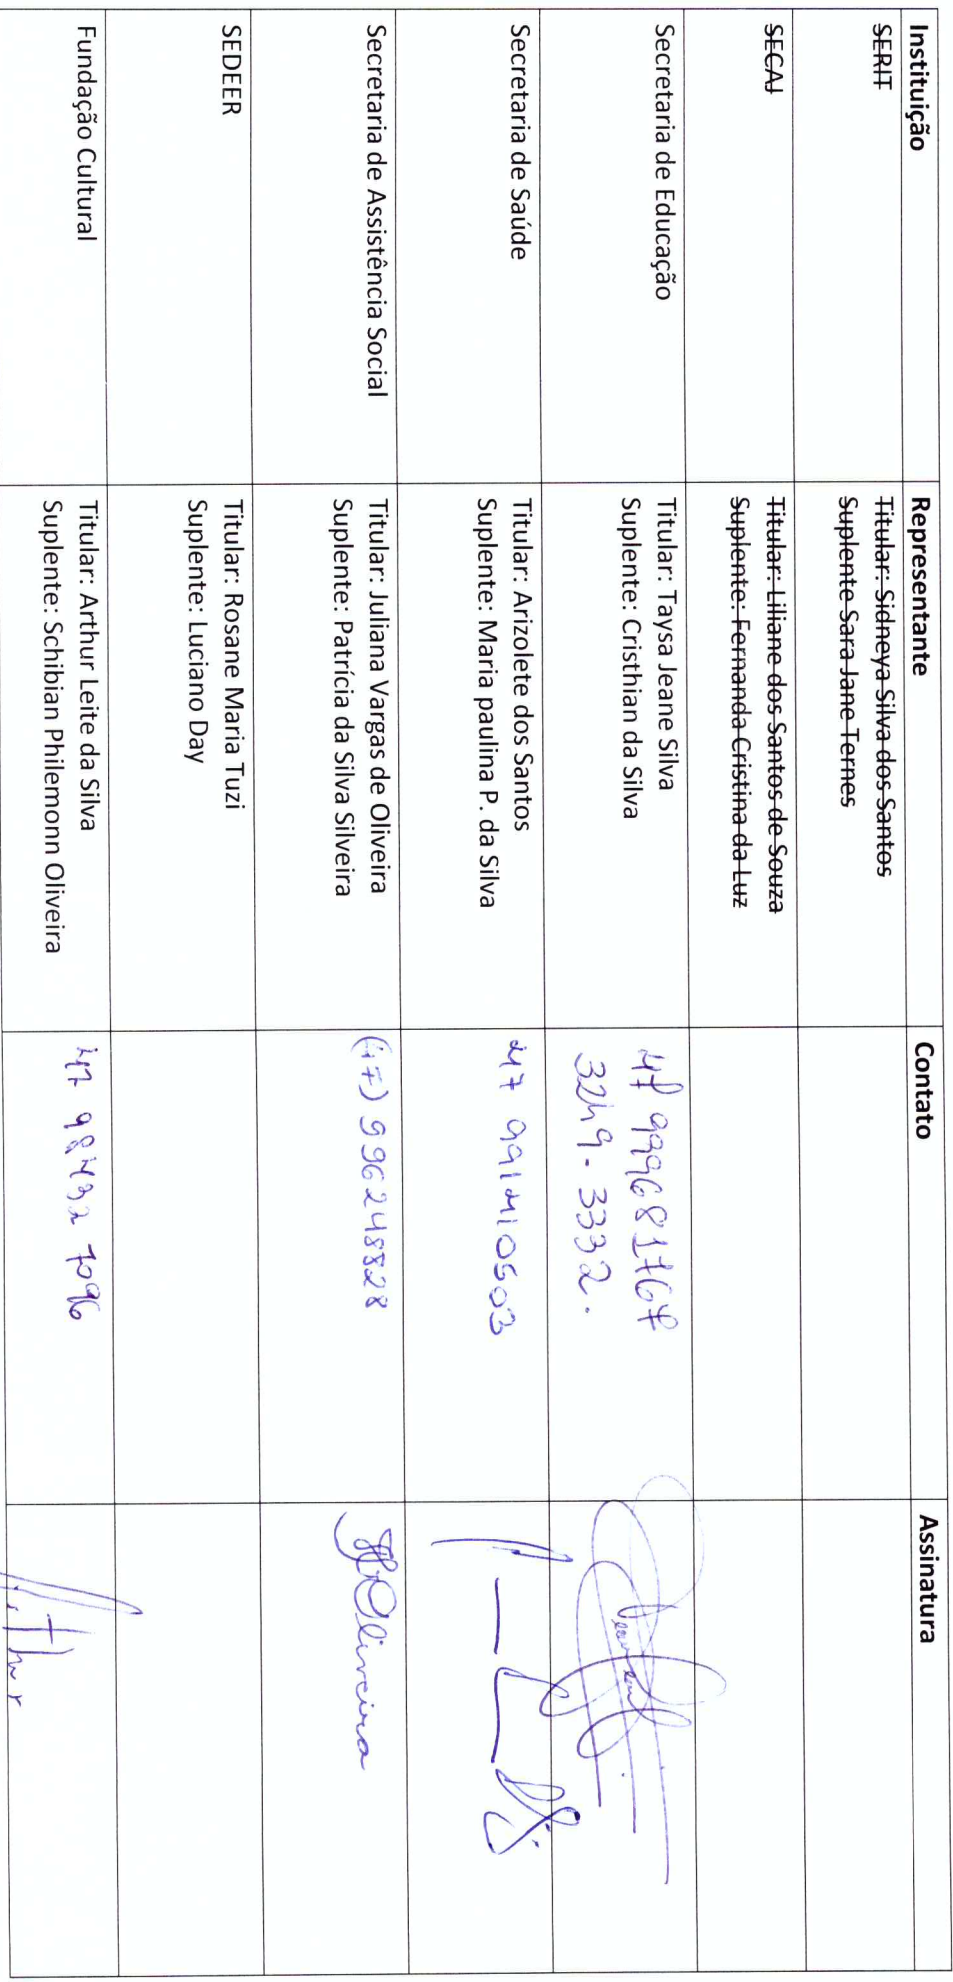 Instituição Representante Contato Assinatura
SERIT
Titular: Sidneya Silva dos Santos
Suplente Sara Jane Ternes
SECAJ
Titular: Liliane dos Santos de Souza
Suplente: Fernanda Cristina da Luz
Secretaria de Educação
Titular: Taysa Jeane Silva
Suplente: Cristhian da Silva
47 999681767
3249-3332.
Secretaria de Saúde
Titular: Arizolete dos Santos
Suplente: Maria paulina P. da Silva
47 991410503
Secretaria de Assistência Social
Titular: Juliana Vargas de Oliveira
Suplente: Patrícia da Silva Silveira
(47) 996248828
Oliveira
SEDEER
Titular: Rosane Maria Tuzi
Suplente: Luciano Day
Fundação Cultural
Titular: Arthur Leite da Silva
Suplente: Schibian Philemonn Oliveira
47 98432 7096
Arthur